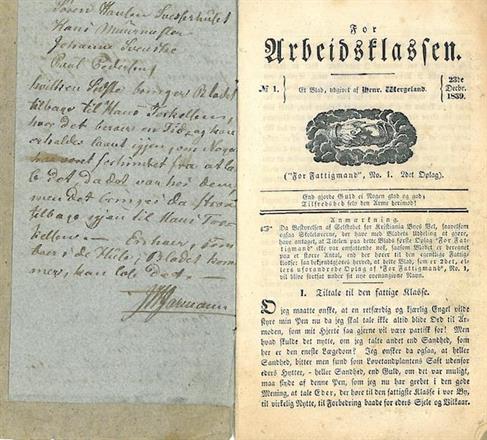 Søren Hansen
Hans Muurmester
Johannes Svenske
Paul Pedersen
hvilken sidste bringer Bladet
tilbage til Hans Torkelsen,
har det bærer en Tidlang kan
erholdes laant igjen, om Nogen
har været forhindret fra at læ-
se det da det var hos dem,
men det bringes da strax
tilbage igjen til Hans Tor-
kelsen. — Enhver, som
boer i de Huse, Bladet kom-
mer, kan læse det —
For
Arbeidsklassen.
№ 1.
Et Blad, udgivet af Henr. Wergeland.
23de
Decbr.
1839.
("For Fattigmand", No. 1. 2det Oplag).
End gjorde Guld ei Nogen glad og god;
Tilfredshed selv den Armes bøimod!
Anmærkning.
Da Bestyrelsen af Selskabet for Kristiania Byes Vel, saavelsom
ogsaa Skolelærerne, der have med Bladets Uddeling at gjøre,
have antaget, at Titelen paa dette Blads første Oplag "For Fat-
tigmand" ikke var omfattende nok, saasom Bladet er ei blot
bestemt for trængende, end det hører til den egentlige Fattig-
klasse; saa bekjendtgjøres herved, at dette Blad, som er det, el-
lers uforandrede Oplag af "For Fattigmand", No. 1,
vil blive fortsat under sit nye ovenangivne Navn.
1. Tiltale til den fattige Klasse.
O jeg maatte ønske, at en retfærdig og kjærlig Engel vilde
styre min Pen nu da jeg skal tale ikke altid blide Ord til Ar-
moden, som mit Hjerte saa gjerne vil være partisk for! Men
hvad skulde det nytte, om jeg talte andet end Sandhed, som
her er den eneste Lægedom? Jeg ønsker da ogsaa, at heller
Sandhed, bitter men sund som Løvetandplantens Saft udenfor
eders Hytter, — heller Sandhed, end Guld, om det var muligt,
maa flyde af denne Pen, som jeg nu har grebet i den gode
Mening, at tale Eder, der høre til den fattigste Klasse i vor By,
til virkelig Nytte, til Forbedring baade for eders Sjele og Vilkaar.